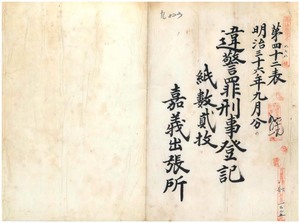 第四十二表
明治三十六年九月分
違警罪刑事登記
紙數貳枚
嘉義出張所